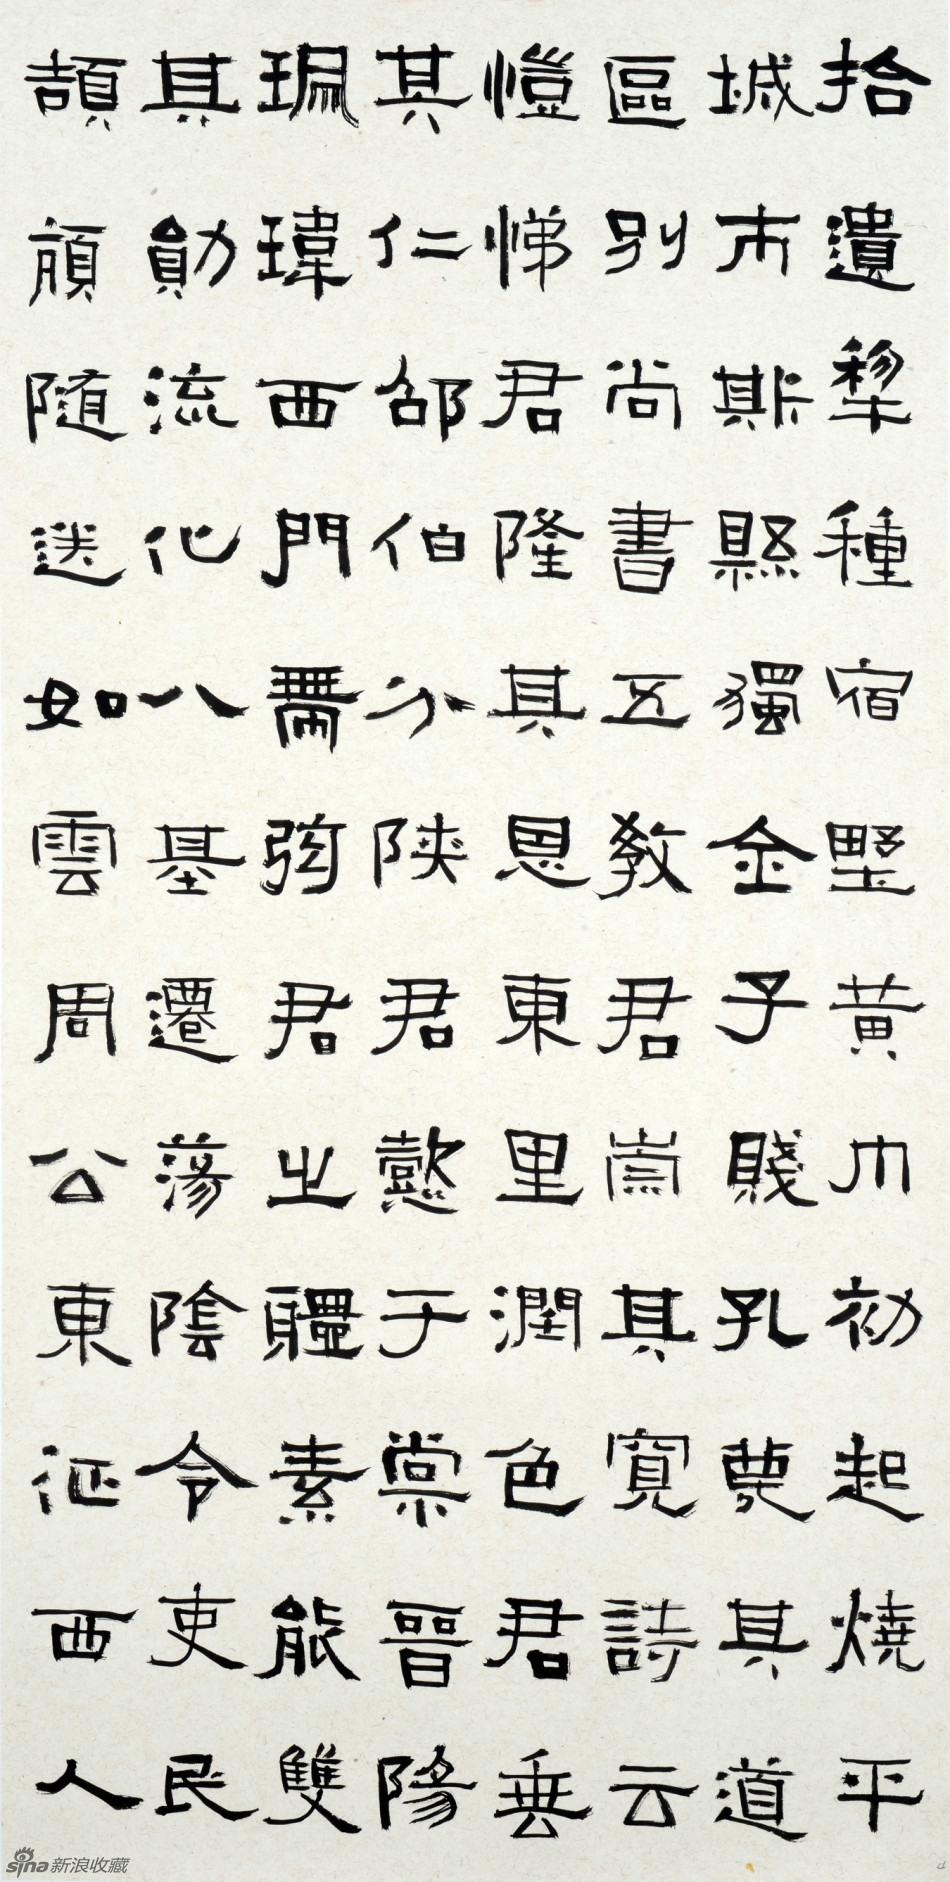 拾遺犂種宿墅黃巾初起燒平
城市斯縣獨全子賤孔蔑其道
區別尚書五教君崇其寬詩云
愷悌君隆其恩東里潤色君垂
其仁邵伯分陝君懿于棠晉陽
珮瑋西門帶弦君之體素能雙
其勛流化八基遷蕩陰令吏民
頡頏隨送如雲周公東征西人
sina新浪收藏